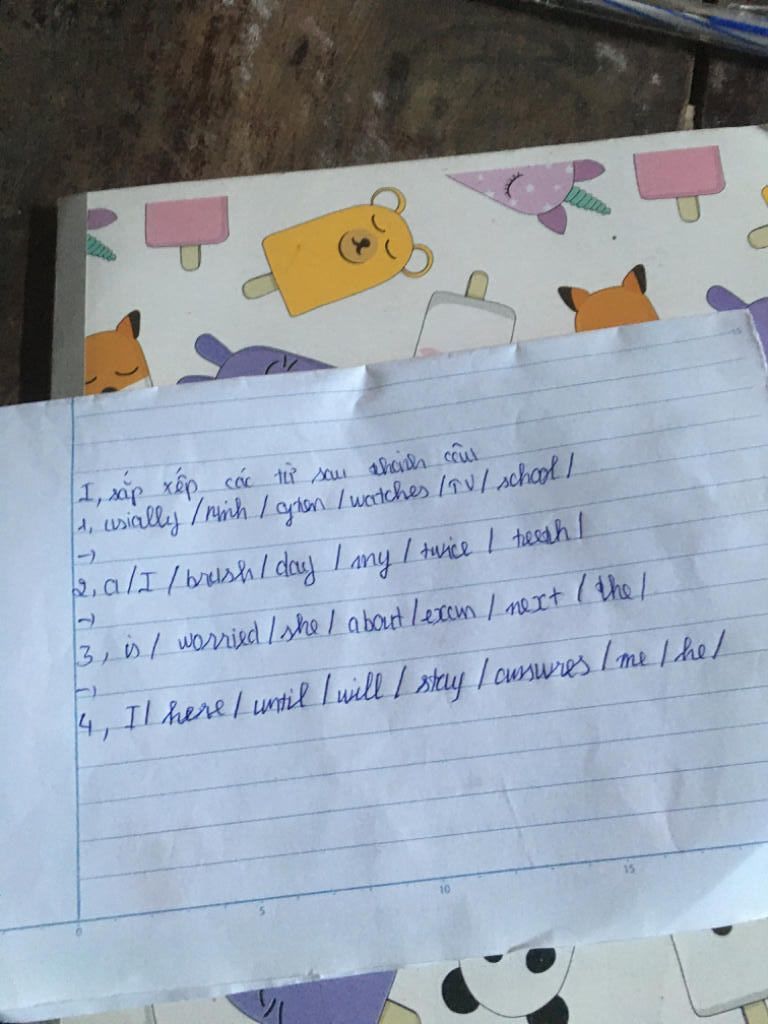 I, sắp xếp các từ sau thành câu
1, usially / Minh / after / watches / TV / school /
→
2, a / I / brush / day / my / twice / teesh /
→
3, is / worried / she / about / exam / next / the /
→
4, I / here / until / will / stay / answres / me / he /
5
10
15
0
15